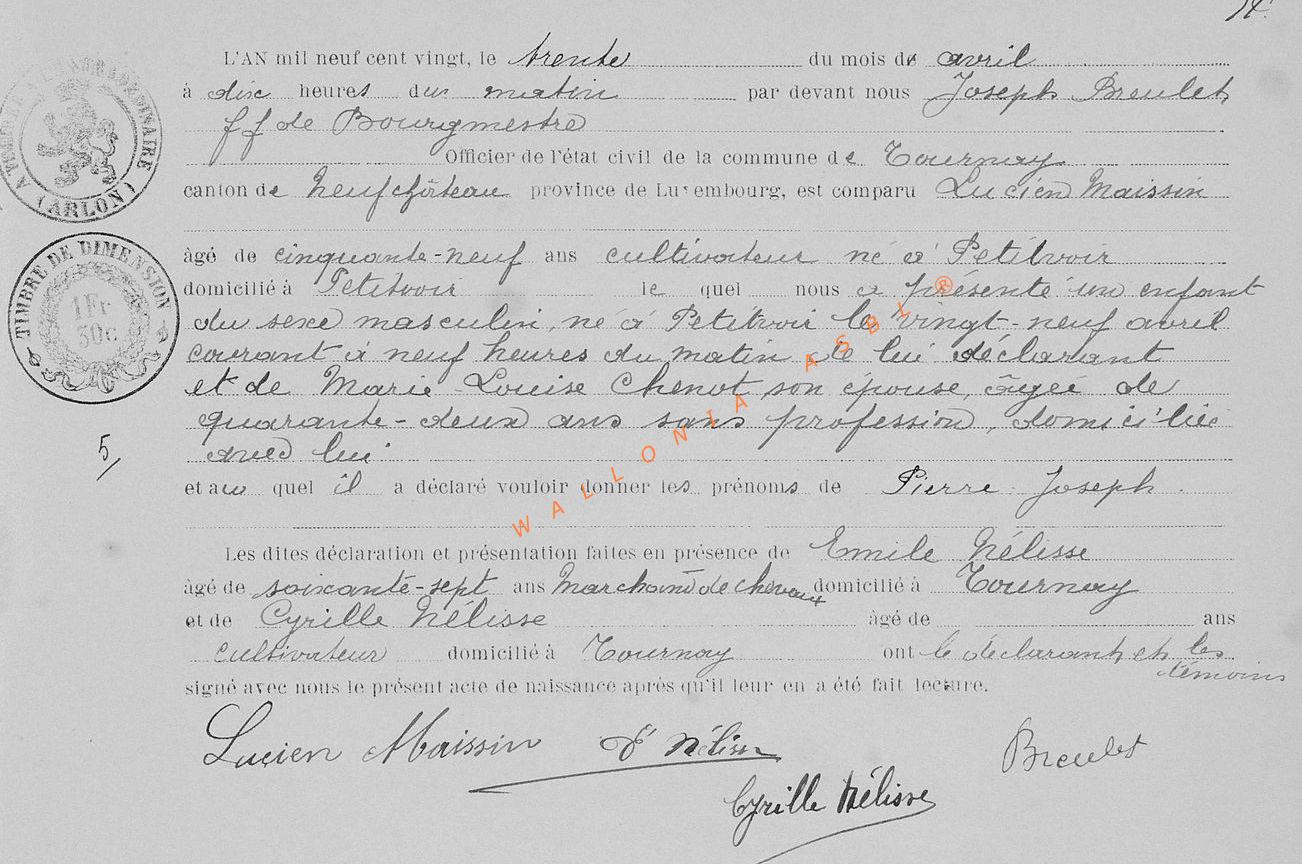 L'AN mil neuf cent vingt, le trente du mois de avril
à dix heures du matin par devant nous Joseph Breulet
ff de Bourgmestre
Officier de l'état civil de la commune de Tournay
canton de Neufchâteau province de Luxembourg, est comparu Lucien Maissin
âgé de cinquante-neuf ans cultivateur né à Petitvoir
domicilié à Petitvoir le quel nous a présenté un enfant
du sexe masculin, né à Petitvoir le vingt-neuf avril
courant à neuf heures du matin de lui déclarant
et de Marie-Louise Chenot, son épouse, âgée de
quarante-deux ans sans profession, domiciliée
avec lui
et au quel il a déclaré vouloir donner les prénoms de Pierre Joseph
Les dites déclaration et présentation faites en présence de Emile Nélisse
âgé de soixante-sept ans Marchand de chevaux domicilié à Tournay
et de Cyrille Nélisse âgé de ans
cultivateur domicilié à Tournay ont le déclarant et les témoins
signé avec nous le présent acte de naissance après qu'il leur en a été fait lecture.
Lucien Maissin Nélisse Breulet
Cyrille Nélisse
5
(ARLON)
TIMBRE DE DIMENSION
1 Fr
30c
WALLONIA ASBL ®